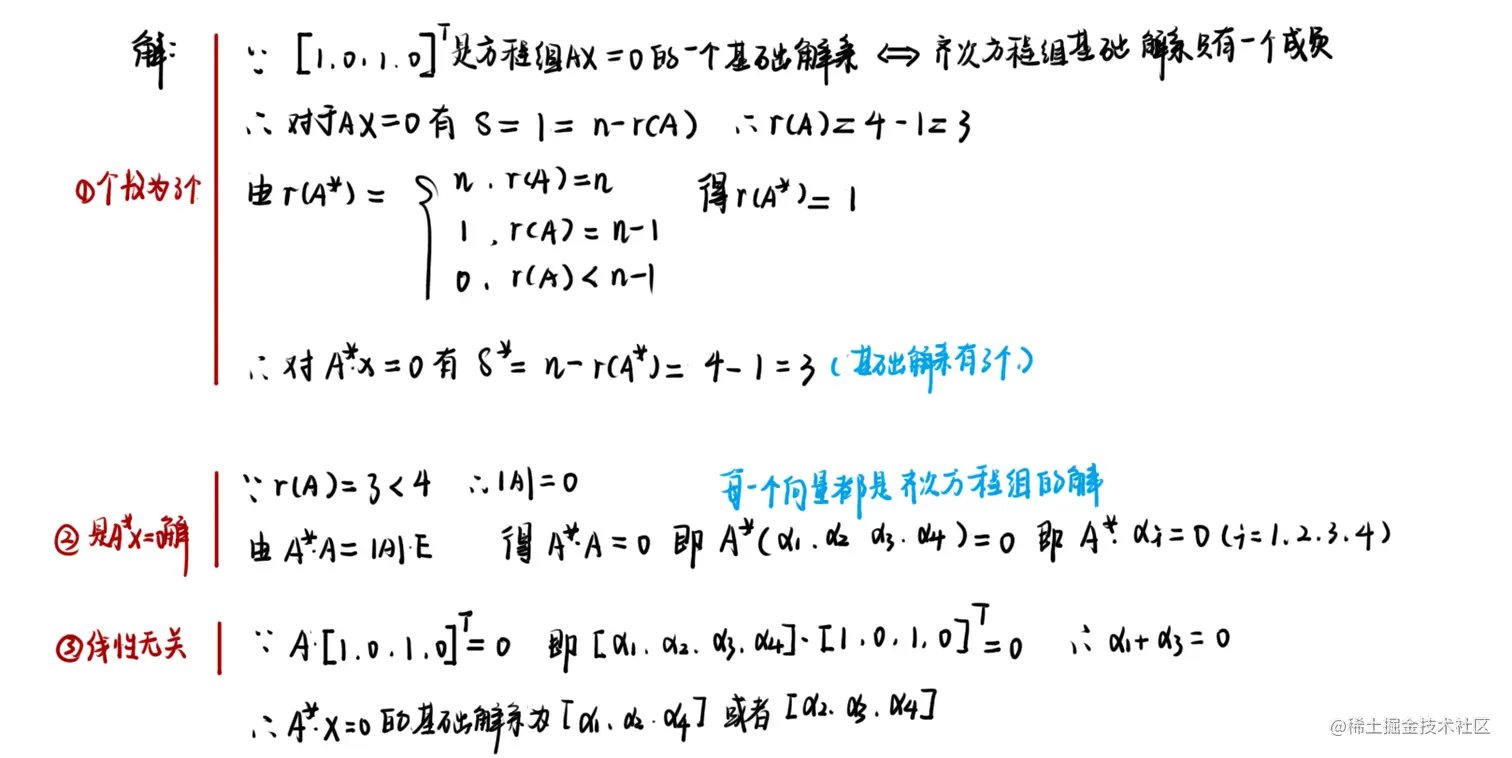 解: ∵ [1.0.1.0]ᵀ是方程组AX=0的一个基础解系 ⇔ 齐次方程组基础解系只有一个成员
∴ 对于AX=0有 S=1=n-r(A) ∴r(A)=4-1=3
①个数为3个 由r(A*)= { n.r(A)=n 得r(A*)=1
1,r(A)=n-1
0.r(A)<n-1
∴ 对A*x=0有 S*=n-r(A*)=4-1=3(基础解系有3个)
∵r(A)=3<4 ∴|A|=0 每一个向量都是齐次方程组的解
②是A*x=0解 由A*·A=|A|·E 得A*·A=0 即 A*(α1.α2 α3.α4)=0 即 A*·αi=0(i=1.2.3.4)
③线性无关 ∵ A·[1.0.1.0]ᵀ=0 即[α1.α2.α3.α4]·[1.0.1.0]ᵀ=0 ∴α1+α3=0
∴A*·x=0的基础解系为[α1.α2.α4]或者[α2.α3.α4]
@稀土掘金技术社区